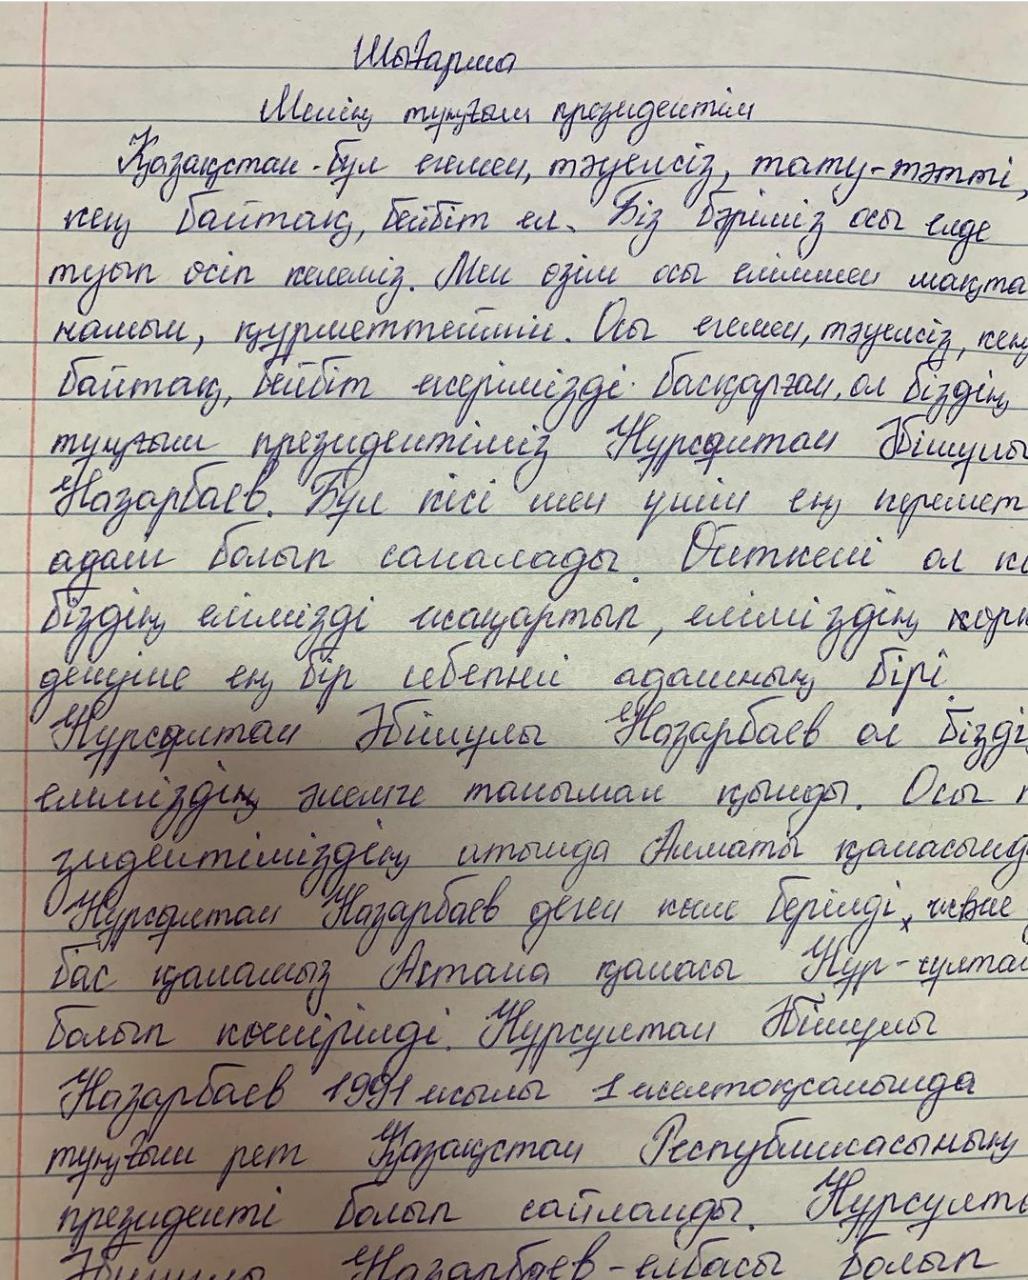 Шығарма
Менің тұңғыш президентім
Қазақстан-бұл егемен, тәуелсіз, тату-тәтті,
кең байтақ, бейбіт ел. Біз бәріміз осы елде
туып өсіп келеміз. Мен өзім осы еліммен мақта
намын, құрметтеймін. Осы егемен, тәуелсіз, кең
байтақ, бейбіт жерімізді басқарған, ол біздің
тұңғыш президентіміз Нұрсұлтан Әбішұлы
Назарбаев. Бұл кісі мен үшін ең керемет
адам болып саналады. Өйткені ол кі
біздің елімізді жаңартып, еліміздің көрк
деңуіне ең бір себепкі адамның бірі
Нұрсұлтан Әбішұлы Назарбаев ол бізді
еліміздің әлемге танымал қылды. Осы п
зидентіміздің атында Алматы қаласынд
Нұрсұлтан Назарбаев деген көше берілді, және
бас қаламыз Астана қаласы Нұр-сұлтан
болып көшірілді. Нұрсұлтан Әбішұлы
Назарбаев 1991 жылы 1 желтоқсанында
тұңғыш рет Қазақстан Республикасының
президенті болып сайланды. Нұрсұлта
Әбішұлы Назарбаев-елбасы болып